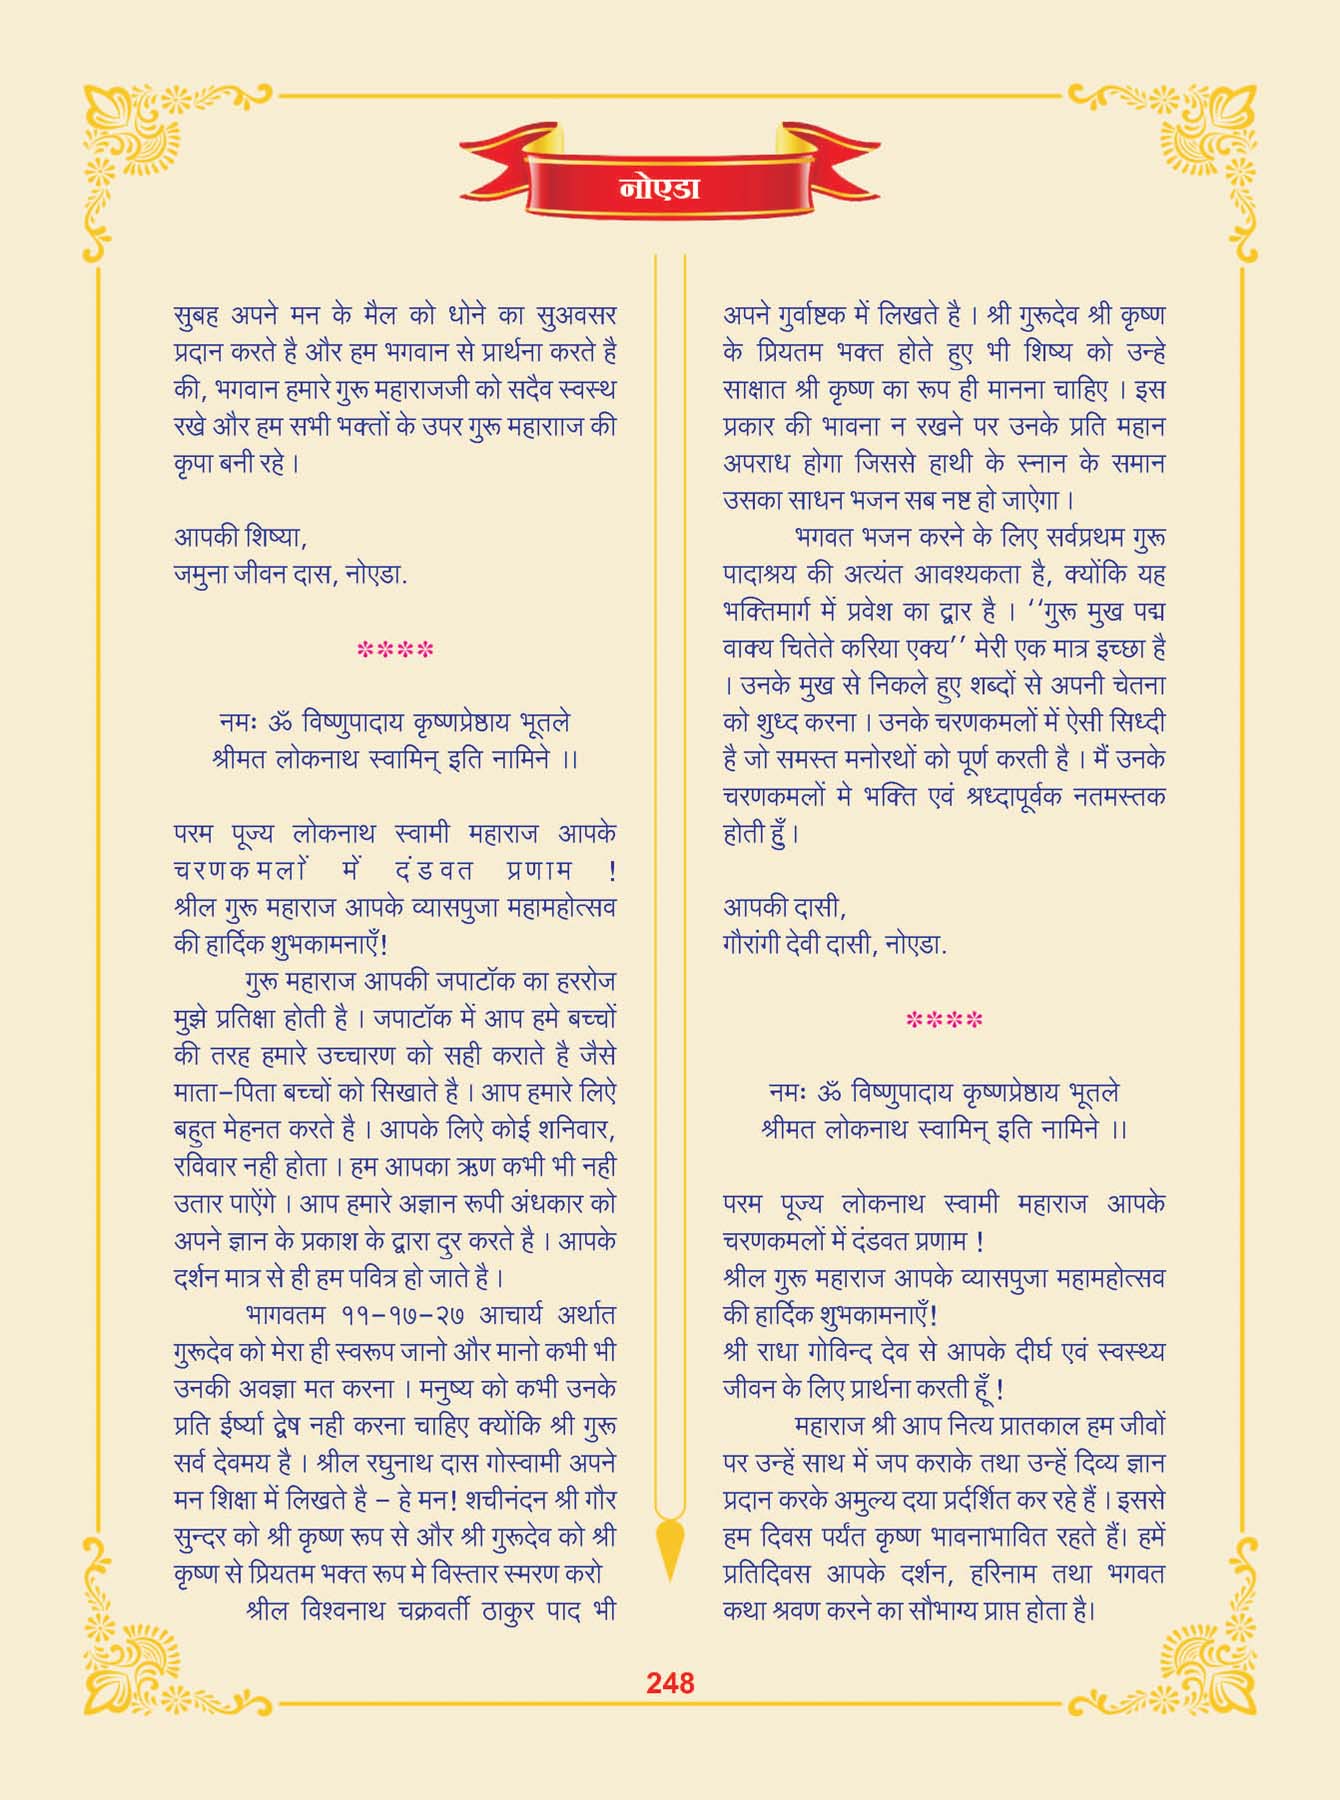 नोएडा
सुबह अपने मन के मैल को धोने का सुअवसर
प्रदान करते है और हम भगवान से प्रार्थना करते है
की, भगवान हमारे गुरू महाराजजी को सदैव स्वस्थ
रखे और हम सभी भक्तों के उपर गुरू महारााज की
कृपा बनी रहे ।
आपकी शिष्या,
जमुना जीवन दास, नोएडा.
****
नमः ॐ विष्णुपादाय कृष्णप्रेष्ठाय भूतले
श्रीमत लोकनाथ स्वामिन् इति नामिने ।।
परम पूज्य लोकनाथ स्वामी महाराज आपके
चरणकमलों में दंडवत प्रणाम !
श्रील गुरू महाराज आपके व्यासपुजा महामहोत्सव
की हार्दिक शुभकामनाएँ!
गुरू महाराज आपकी जपाटॉक का हररोज
मुझे प्रतिक्षा होती है । जपाटॉक में आप हमे बच्चों
की तरह हमारे उच्चारण को सही कराते है जैसे
माता-पिता बच्चों को सिखाते है । आप हमारे लिऐ
बहुत मेहनत करते है । आपके लिऐ कोई शनिवार,
रविवार नही होता । हम आपका ऋण कभी भी नही
उतार पाऐंगे । आप हमारे अज्ञान रूपी अंधकार को
अपने ज्ञान के प्रकाश के द्वारा दुर करते है । आपके
दर्शन मात्र से ही हम पवित्र हो जाते है ।
भागवतम ११-१७-२७ आचार्य अर्थात
गुरूदेव को मेरा ही स्वरूप जानो और मानो कभी भी
उनकी अवज्ञा मत करना । मनुष्य को कभी उनके
प्रति ईर्ष्या द्वेष नही करना चाहिए क्योंकि श्री गुरू
सर्व देवमय है । श्रील रघुनाथ दास गोस्वामी अपने
मन शिक्षा में लिखते है - हे मन! शचीनंदन श्री गौर
सुन्दर को श्री कृष्ण रूप से और श्री गुरूदेव को श्री
कृष्ण से प्रियतम भक्त रूप मे विस्तार स्मरण करो
श्रील विश्वनाथ चक्रवर्ती ठाकुर पाद भी
अपने गुर्वाष्टक में लिखते है । श्री गुरूदेव श्री कृष्ण
के प्रियतम भक्त होते हुए भी शिष्य को उन्हे
साक्षात श्री कृष्ण का रूप ही मानना चाहिए । इस
प्रकार की भावना न रखने पर उनके प्रति महान
अपराध होगा जिससे हाथी के स्नान के समान
उसका साधन भजन सब नष्ट हो जाऐगा ।
भगवत भजन करने के लिए सर्वप्रथम गुरू
पादाश्रय की अत्यंत आवश्यकता है, क्योंकि यह
भक्तिमार्ग में प्रवेश का द्वार है । ‘‘गुरू मुख पद्म
वाक्य चितेते करिया एक्य’’ मेरी एक मात्र इच्छा है
। उनके मुख से निकले हुए शब्दों से अपनी चेतना
को शुध्द करना । उनके चरणकमलों में ऐसी सिध्दी
है जो समस्त मनोरथों को पूर्ण करती है । मैं उनके
चरणकमलों मे भक्ति एवं श्रध्दापूर्वक नतमस्तक
होती हुँ ।
आपकी दासी,
गौरांगी देवी दासी, नोएडा.
****
नमः ॐ विष्णुपादाय कृष्णप्रेष्ठाय भूतले
श्रीमत लोकनाथ स्वामिन् इति नामिने ।।
परम पूज्य लोकनाथ स्वामी महाराज आपके
चरणकमलों में दंडवत प्रणाम !
श्रील गुरू महाराज आपके व्यासपुजा महामहोत्सव
की हार्दिक शुभकामनाएँ!
श्री राधा गोविन्द देव से आपके दीर्घ एवं स्वस्थ्य
जीवन के लिए प्रार्थना करती हूँ !
महाराज श्री आप नित्य प्रातकाल हम जीवों
पर उन्हें साथ में जप कराके तथा उन्हें दिव्य ज्ञान
प्रदान करके अमुल्य दया प्रर्दर्शित कर रहे हैं । इससे
हम दिवस पर्यंत कृष्ण भावनाभावित रहते हैं। हमें
प्रतिदिवस आपके दर्शन, हरिनाम तथा भगवत
कथा श्रवण करने का सौभाग्य प्राप्त होता है।
248